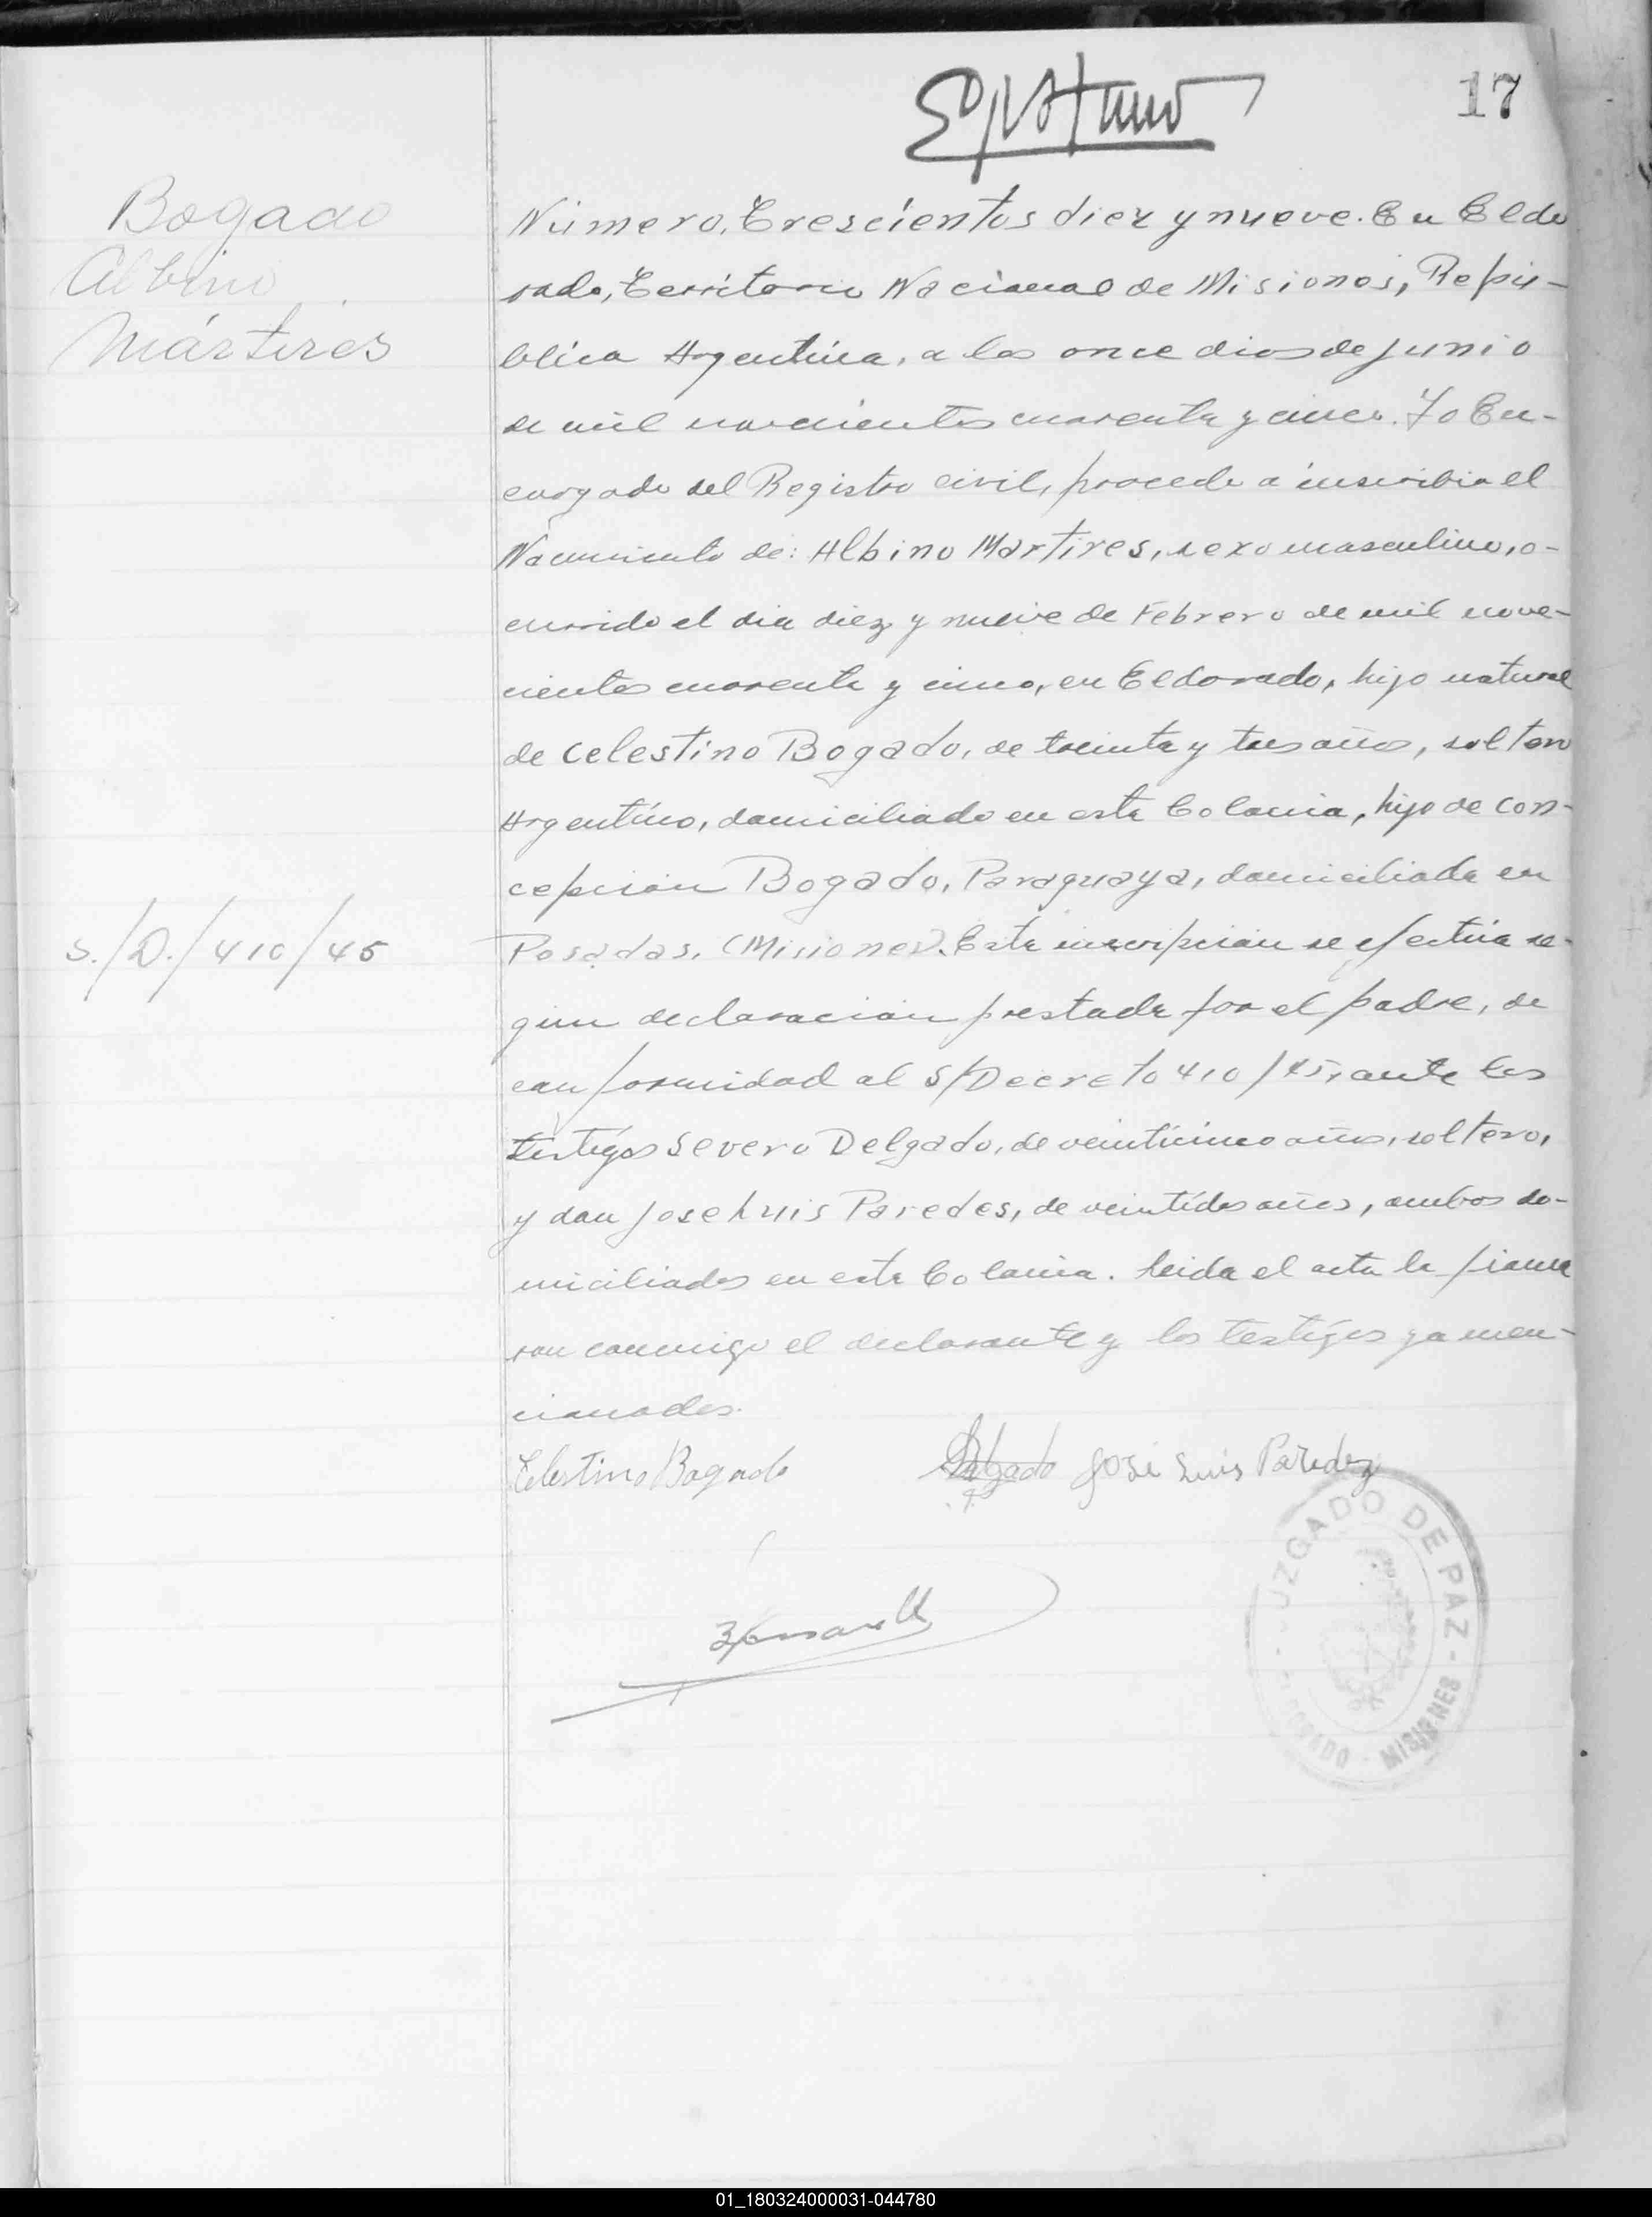 17
Bogado
Albino
Mártires
Número, Trescientos diez y nueve. En Eldo
rado, Territorio Nacional de Misiones, Repú-
blica Argentina, a los once dias de junio
de mil novecientos cuarenta y cinco. Yo En-
cargado del Registro civil, procedo a inscribir el
Nacimiento de: Albino Martires, sexo masculino, o-
currido el dia diez y nueve de Febrero de mil nove-
cientos cuarenta y cinco, en Eldorado, hijo natural
de Celestino Bogado, de treinta y tres años, soltero
Argentino, domiciliado en esta Colonia, hijo de Con-
cepcion Bogado, Paraguaya, domiciliada en
S./D./410/45
Posadas, (Misiones). Esta inscripcion se efectúa se-
gun declaracion prestada por el padre, de
conformidad al S/Decreto 410/45, ante los
testigos Severo Delgado, de veinticinco años, soltero,
y don Jose Luis Paredes, de veintidos años, ambos do-
miciliados en esta Colonia. Leida el acta la firma
ron conmigo el declarante y los testigos ya men-
cionados.
Celestino Bogado Delgado José Luis Paredez
JUZGADO DE PAZ - MISIONES
01_180324000031-044780